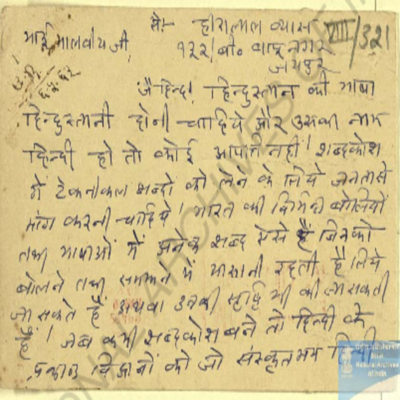 से:- हीरालाल व्यास
VIII/321
भाई मालवीय जी,
१२२ बी० बापू नगर
जयपुर
जैहिन्द। हिन्दुस्तान की भाषा
हिन्दुस्तानी होनी चाहिये और उसका नाम
हिन्दी हो तो कोई आपत्ति नहीं। शब्दकोश
में टेकनीकल शब्दों को लेने के लिये जनता से
मांग करनी चाहिये। भारत की विभिन्न बोलियों
तथा भाषाओं में अनेक शब्द ऐसे हैं जिनको
बोलने तथा समझने में आसानी रहती है लिये
जा सकते हैं अथवा उनकी सृष्टि भी की जा सकती
है। जब कभी शब्दकोश बने तो हिन्दी के
विद्वानों को जो संस्कृतमय हिन्दी